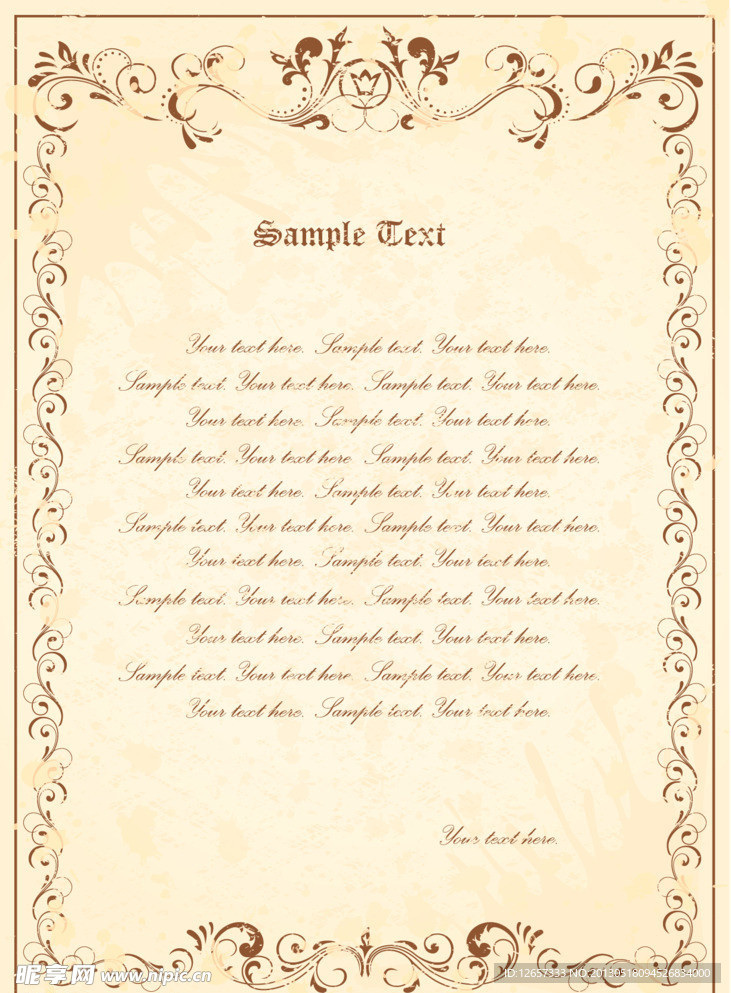 Sample Text
Your text here. Sample text. Your text here.
Sample text. Your text here. Sample text. Your text here.
Your text here. Sample text. Your text here.
Sample text. Your text here. Sample text. Your text here.
Your text here. Sample text. Your text here.
Sample text. Your text here. Sample text. Your text here.
Your text here. Sample text. Your text here.
Sample text. Your text here. Sample text. Your text here.
Your text here. Sample text. Your text here.
Sample text. Your text here. Sample text. Your text here.
Your text here. Sample text. Your text here.
Your text here.
昵享网 www.nipic.cn
ID:12657333 NO:20130518094526834000